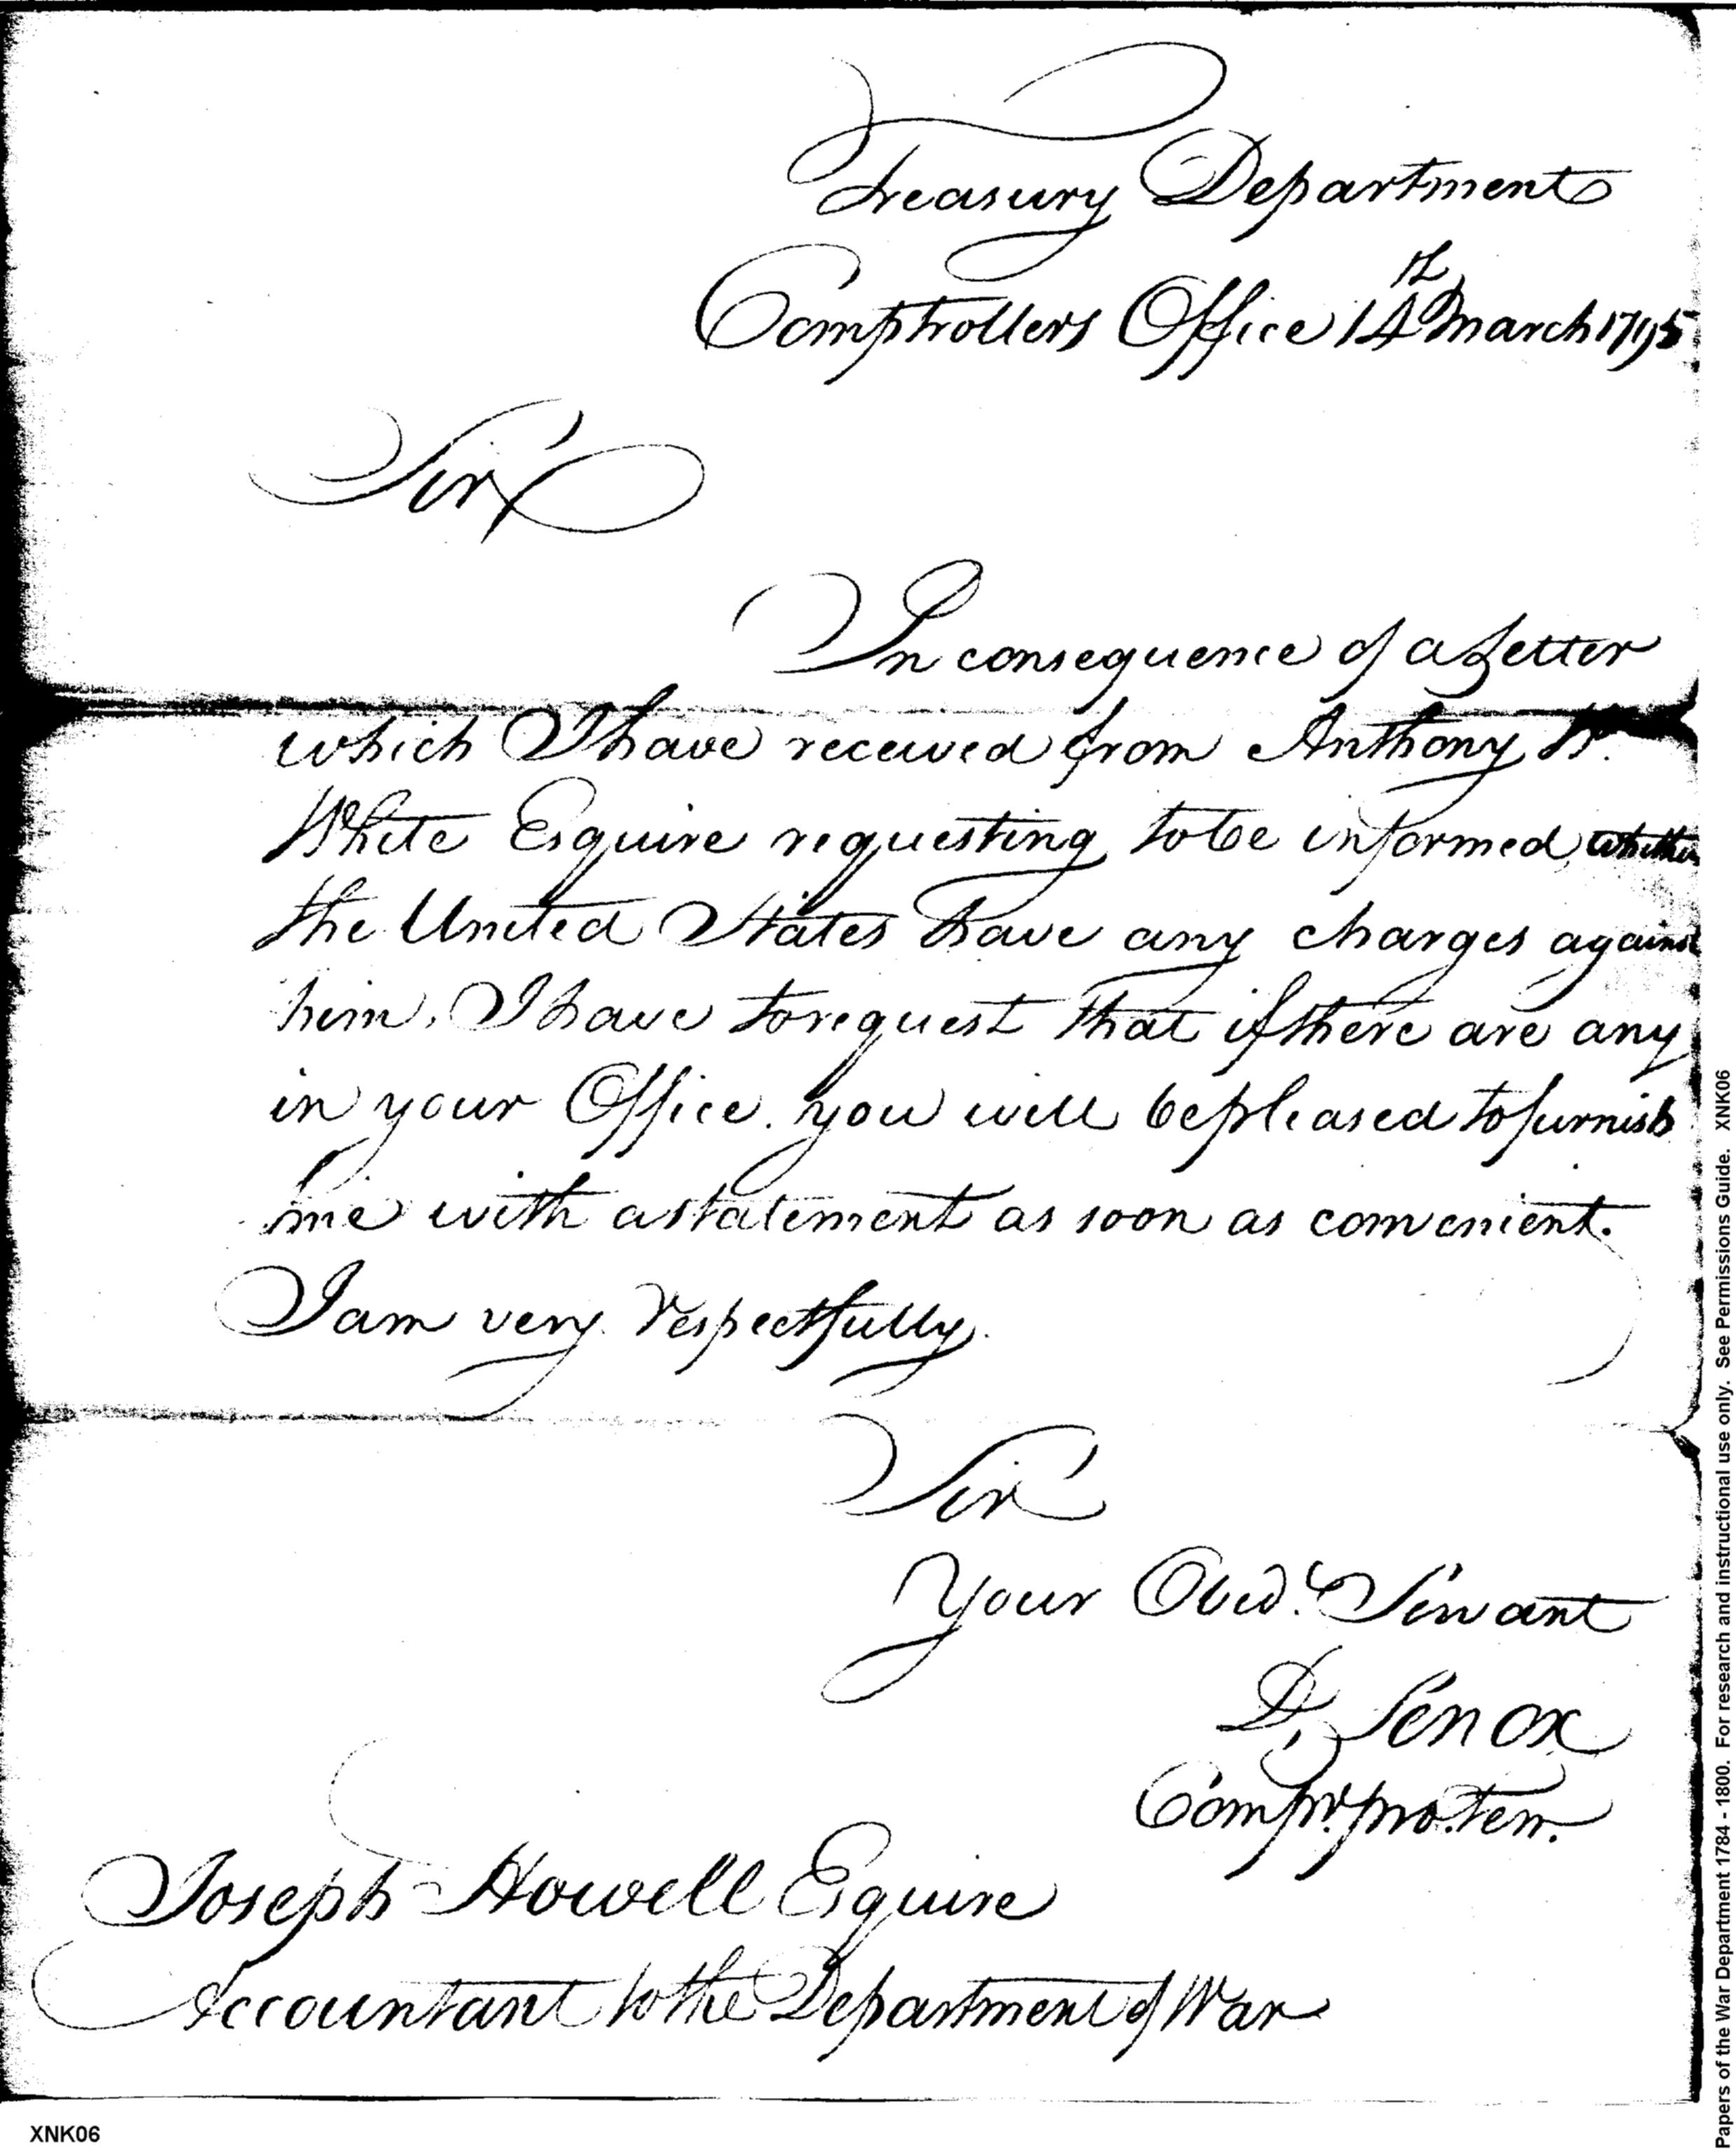 Treasury Department
Comptrollers Office 14th March 1795
Sir
In consequence of a Letter
which I have received from Anthony W.
White Esquire requesting to be informed, whether
the United States have any charges against
him, I have to request that if there are any
in your Office. you will be pleased to furnish
me with a statement as soon as convenient.
I am very respectfully.
Sir
Your Obed.t Servant
D, Lenox
Compr. pro. tem.
Joseph Howell Esquire
Accountant to the Department of War
XNK06
Papers of the War Department 1784 - 1800. For research and instructional use only. See Permissions Guide. XNK06